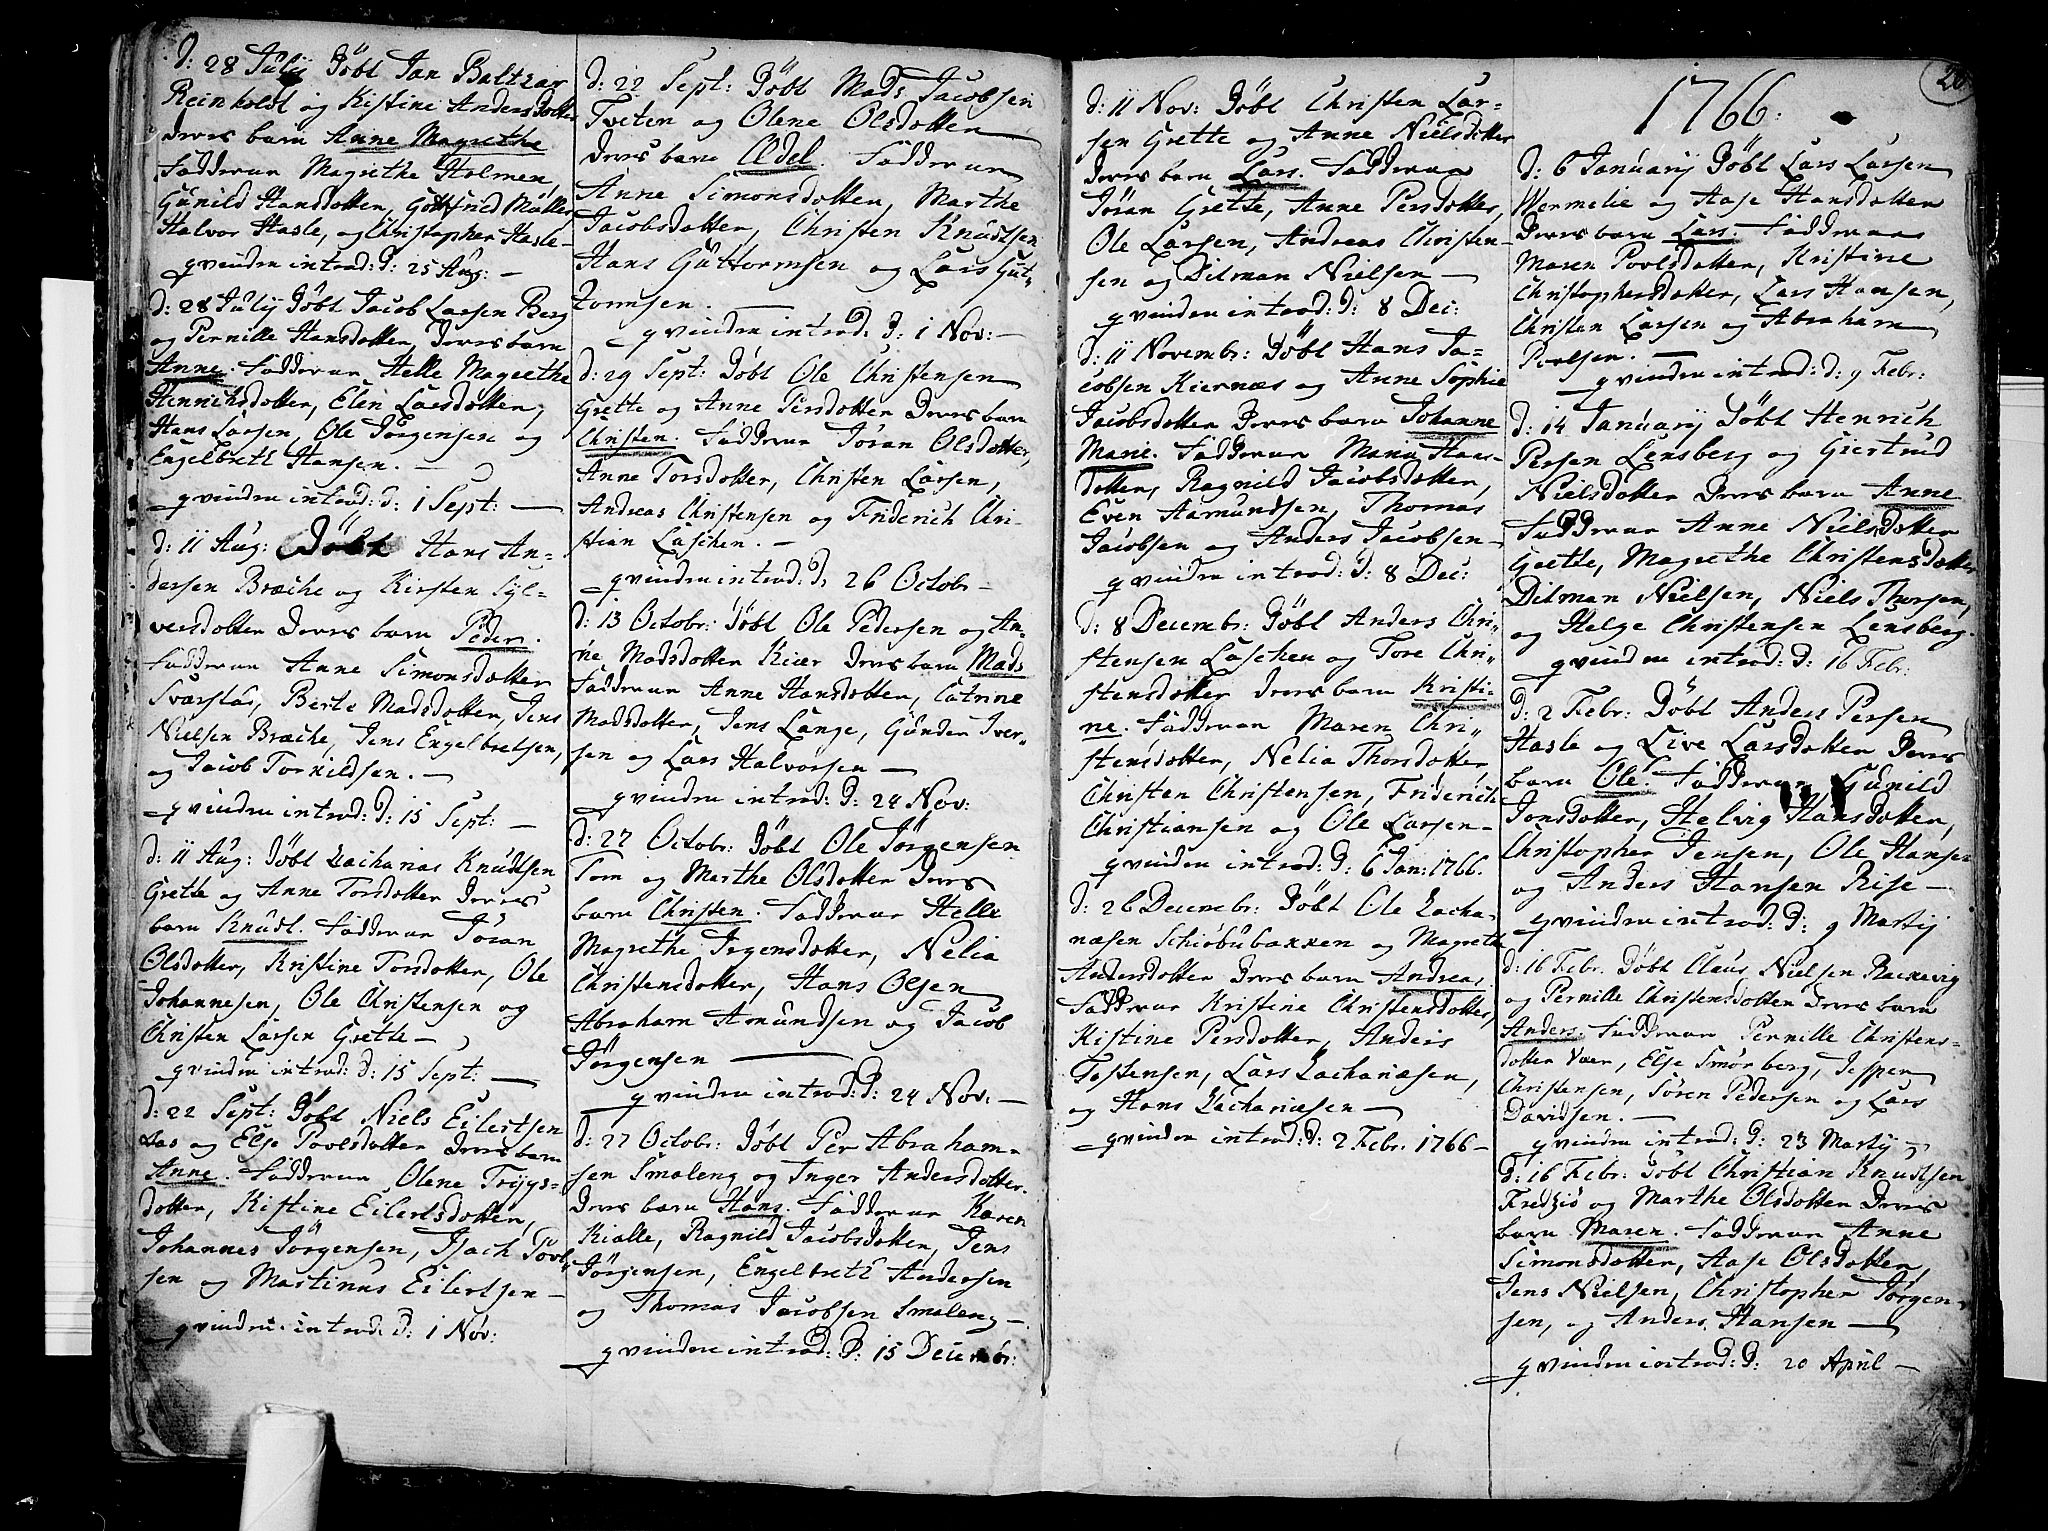 d: 28 Julij Döbt Jan Baltzar
Reinholdt og Kistine Andersdotter
deres barn Anne Magrethe
Fadderne Magrethe Holmen,
Gunild Hansdotter, Gottfried Müller
Halvor Hasle, og Christopher Hasle-
qvinden introd: d: 25 Aug: -
d: 28 Julij Döbt Jacob Larsen Berg
og Pernille Hansdotter, deres barn
Anne. Fadderne Helle Magrethe
Henrichsdotter, Elen Larsdotter,
Hans Larsen, Ole Jörgensen og
Engelbreth Hansen. -
qvinden introd: d: 1 Sept: -
d: 11 Aug: Döbt Hans An-
dersen Bræche og Kirsten Syl-
versdotter deres barn Peder.
Fadderne Anne Simonsdotter
Sværstad, Berte Madsdotter, Jens
Nielsen Bræche, Jens Engelbretsen,
og Jacob Torkildsen. -
qvinden introd: d: 15 Sept: -
d: 11 Aug: Döbt Zacharias Knudtsen
Grette og Anne Torsdotter deres
barn Knudt. Fadderne Jöran
Olsdotter, Kristine Torsdotter, Ole
Johannesen, Ole Christensen og
Christen Larsen Grette -
qvinden introd: d: 15 Sept: -
d: 22 Sept: Döbt Niels Eilertsen
Aas og Else Povlsdotter deres barn
Anne. Fadderne Olene Trygs-
dotter, Kistine Eilertsdotter,
Johannes Jörgensen, Isach Povl-
sen og Martinus Eilertsen -
qvinden introd: d: 1 Nov:
d: 22 Sept: Döbt Mads Jacobsen
Tveten og Olene Olsdotter
deres barn Edel. Fadderne
Anne Simonsdotter, Marthe
Jacobsdotter, Christen Knudtsen
Hans Guttormsen og Lars Gut-
tormsen. -
qvinden introd: d: 1 Nov: -
d: 29 Sept: Döbt Ole Christensen
Grette og Anne Persdotter deres barn
Christen. Fadderne Jöran Olsdotter,
Anne Torsdotter, Christen Larsen,
Andreas Christensen og Friderich Chri-
stian Laschen. -
qvinden introd: d: 26 Octobr -
d: 13 Octobr: Döbt Ole Pedersen og An-
ne Madsdotter Kiær deres barn Mads
Fadderne Anne Hansdotter, Catrine
Madsdotter, Jens Lange, Gunder Iver-
sen og Lars Halvorsen -
qvinden introd: d: 24 Nov:
d: 27 Octobr: Döbt Ole Jörgensen
Torn og Marthe Olsdotter deres
barn Christen. Fadderne Helle
Magrethe Irgensdotter, Nelia
Christensdotter, Hans Olsen
Abraham Amundsen og Jacob
Jörgensen -
qvinden introd: d: 24 Nov: -
d: 27 Octobr: Döbt Per Abraham-
sen Smaleng og Inger Andersdotter
deres barn Hans. Fadderne Karen
Kialle, Ragnild Jacobsdotter, Jens
Jörgensen, Engelbreth Andersen
og Thomas Jacobsen Smaleng -
qvinden introd: d: 15 Decembr:
d: 11 Nov: Döbt Christen Lar-
sen Grette og Anne Nielsdotter
deres barn Lars. Fadderne
Jöran Grette, Anne Persdotter,
Ole Larsen, Andreas Christen-
sen og Ditman Nielsen -
qvinden introd: d: 8 Dec:
d: 11 Novembr: Döbt Hans Ja-
cobsen Kiernæs og Anne Sophie
Jacobsdotter deres barn Johanne
Marie. Fadderne Maria Hans-
dotter, Ragnild Jacobsdotter,
Even Aamundsen, Thomas
Jacobsen og Anders Jacobsen -
qvinden introd: d: 8 Dec:
d: 8 Decembr: Döbt Anders Chri-
stensen Laschen og Tore Chri-
stensdotter deres barn Kristi-
ne. Fadderne Maren Chri-
stensdotter, Nelia Thorsdotter
Christen Christensen, Friderich
Christiansen og Ole Larsen -
qvinden introd: d: 6 Jan: 1766.
d: 26 Decembr: Döbt Ole Zacha-
riæsen Schiöbubakken og Magrete
Andersdotter deres barn Andreas
Fadderne Kristine Christensdotter,
Kistine Persdotter, Anders
Tostensen, Lars Zachariæsen,
og Hans Zachariæsen -
qvinden introd: d: 2 Febr. 1766 -
20
1766.
d: 6 Januarij Döbt Lars Larsen
Wermelie og Aase Hansdotter
deres barn Lars. Fadderne
Maren Povlsdotter, Kristine
Christophersdotter, Lars Hansen,
Christen Larsen og Abraham
Povlsen. -
qvinden introd: d: 9 Febr:
d: 14 Januarij Döbt Henrich
Persen Lensberg og Giertrud
Nielsdotter deres barn Anne
Fadderne Anne Nielsdotter
Grette, Magrethe Christensdotter
Ditman Nielsen, Niels Thorsen,
og Helge Christensen Lensberg.
qvinden introd: d: 16 Febr:
d: 2 Febr: Döbt Anders Persen
Hasle og Live Larsdotter deres
barn Ole. Fadderne Gunild
Jonsdotter, Helvig Hansdotter,
Christopher Jensen, Ole Hansen
og Anders Hansen Rise -
qvinden introd: d: 9 Martij
d: 16 Febr. Döbt Claus Nielsen Backevig
og Pernille Christensdotter deres barn
Anders. Fadderne Pernille Christens-
dotter Vær, Else Smørberg, Jesper
Christensen, Sören Pedersen og Lars
Davidsen. -
qvinden introd: d: 23 Martij
d: 16 Febr: Döbt Christian Knudtsen
og Marthe Olsdotter deres
barn Maren. Fadderne Anne
Simonsdotter, Aase Olsdotter,
Jens Nielsen, Christopher Jörgen-
sen, og Anders Hansen -
qvinden introd: d: 20 April -